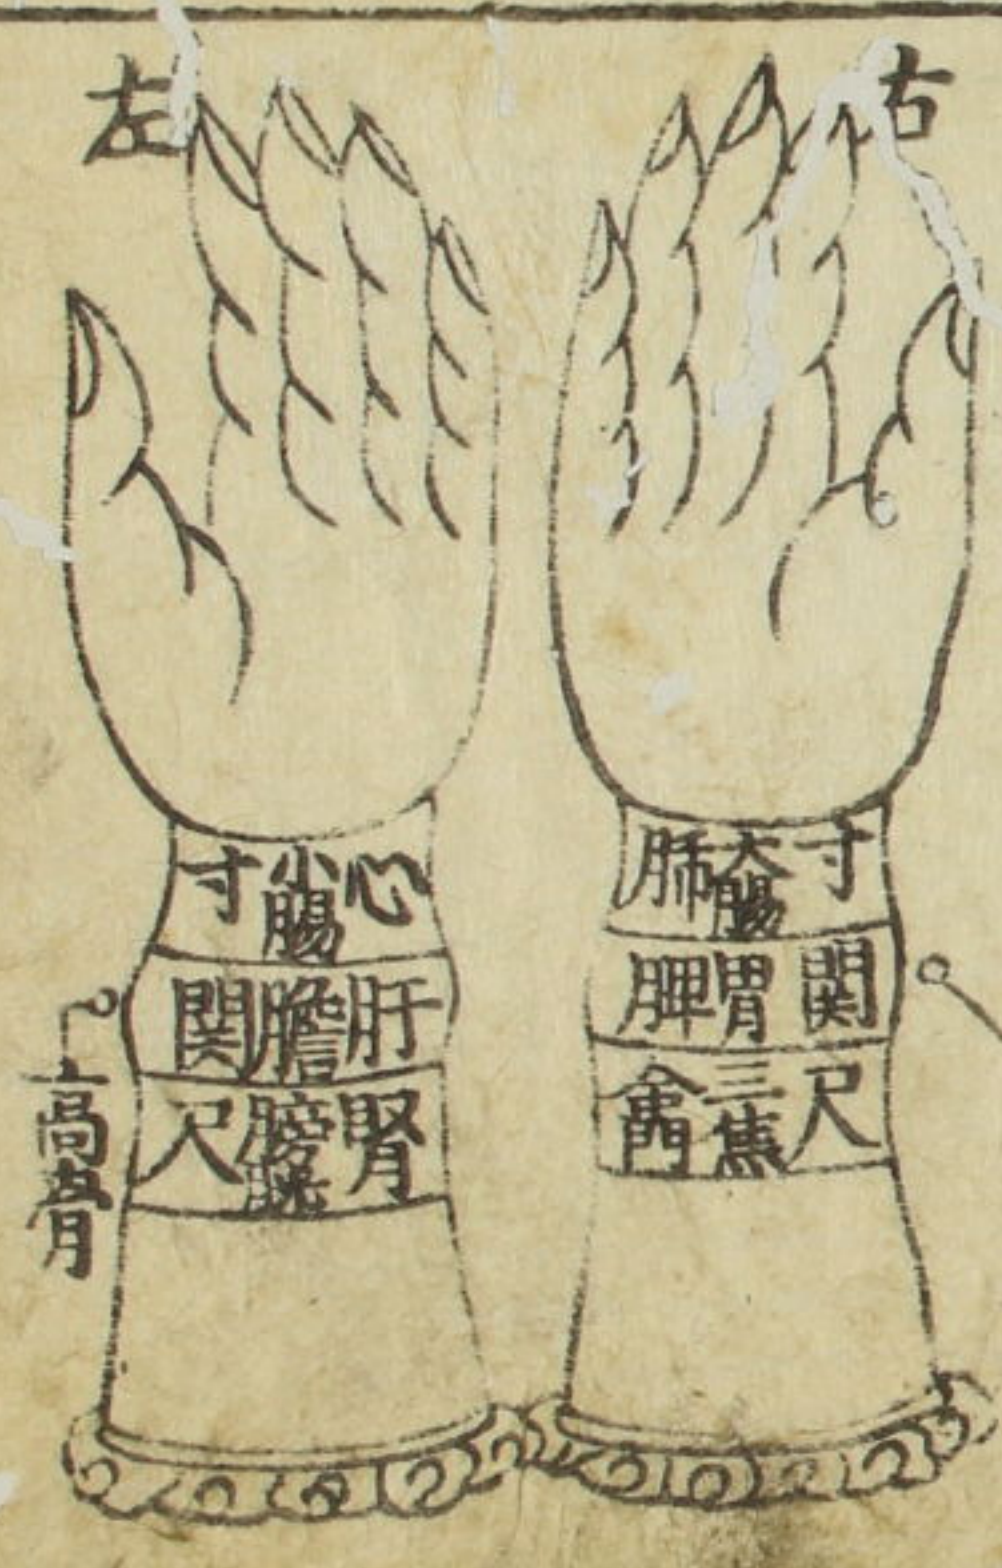 右
寸
大腸
肺
関
胃
脾
尺
三焦
命門
左
心
小腸
寸
肝
膽
関
腎
膀胱
尺
高骨